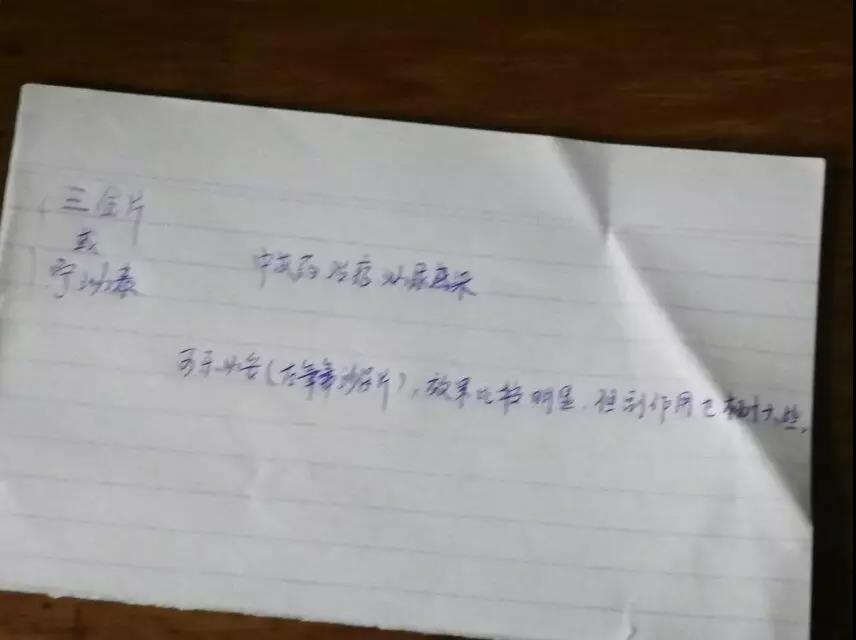 三金片
或
宁泌泰
中成药治疗泌尿感染
可乐必妥(左氧氟沙星片),效果比较明显,但副作用也相对大些,